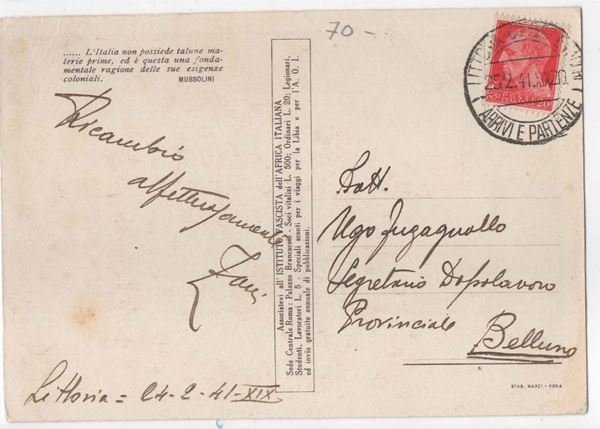 70 -
...... L'Italia non possiede talune ma-
terie prime, ed è questa una fonda-
mentale ragione delle sue esigenze
coloniali. MUSSOLINI
Ricambio
affettuosamente
Littoria = 24-2-41-XIX
Associatevi all' ISTITUTO FASCISTA dell'AFRICA ITALIANA
Sede Centrale Roma: Palazzo Brancaccio - Soci vitalizi L. 500; Ordinari L. 20; Legionari,
Studenti, Lavoratori L. 5 - Speciali sconti per i viaggi per la Libia e per l'A. O. I.
ed invio gratuito annuale di pubblicazioni.
25.2.41.XIX
ARRIVI E PARTENZE
Dott.
Ugo Fugagnollo
Segretario Dopolavoro
Provinciale
Belluno
STAB. MARZI - ROMA